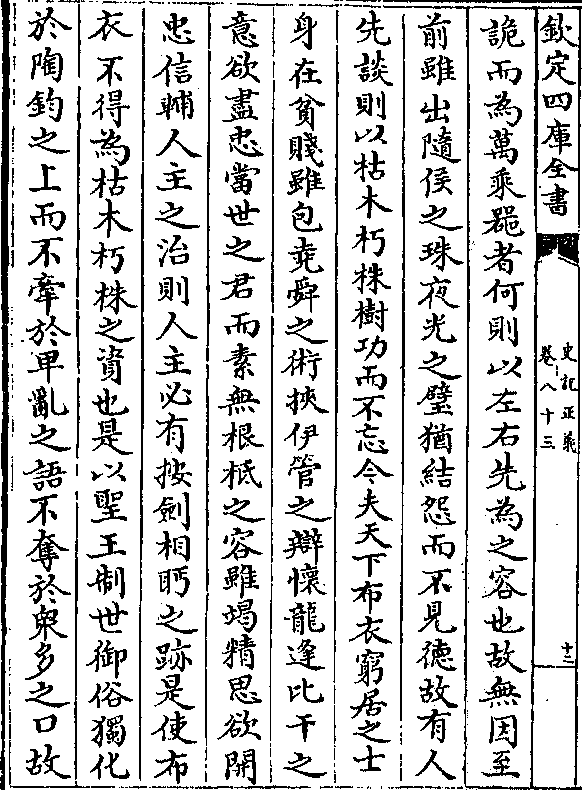 欽定四庫全書
史記正義
卷八十三
十二
詭而為萬乗噐者何則以左右先為之容也故無因至
前雖出隨侯之珠夜光之璧猶結怨而不見徳故有人
先談則以枯木朽株樹功而不忘今夫天下布衣窮居之士
身在貧賤雖包堯舜之術挾伊管之辯懷龍逢比干之
意欲盡忠當世之君而素無根柢之容雖竭精思欲開
忠信輔人主之治則人主必有按劍相眄之跡是使布
衣不得為枯木朽株之資也是以聖王制世御俗獨化
於陶鈞之上而不牽於卑亂之語不奪於衆多之口故